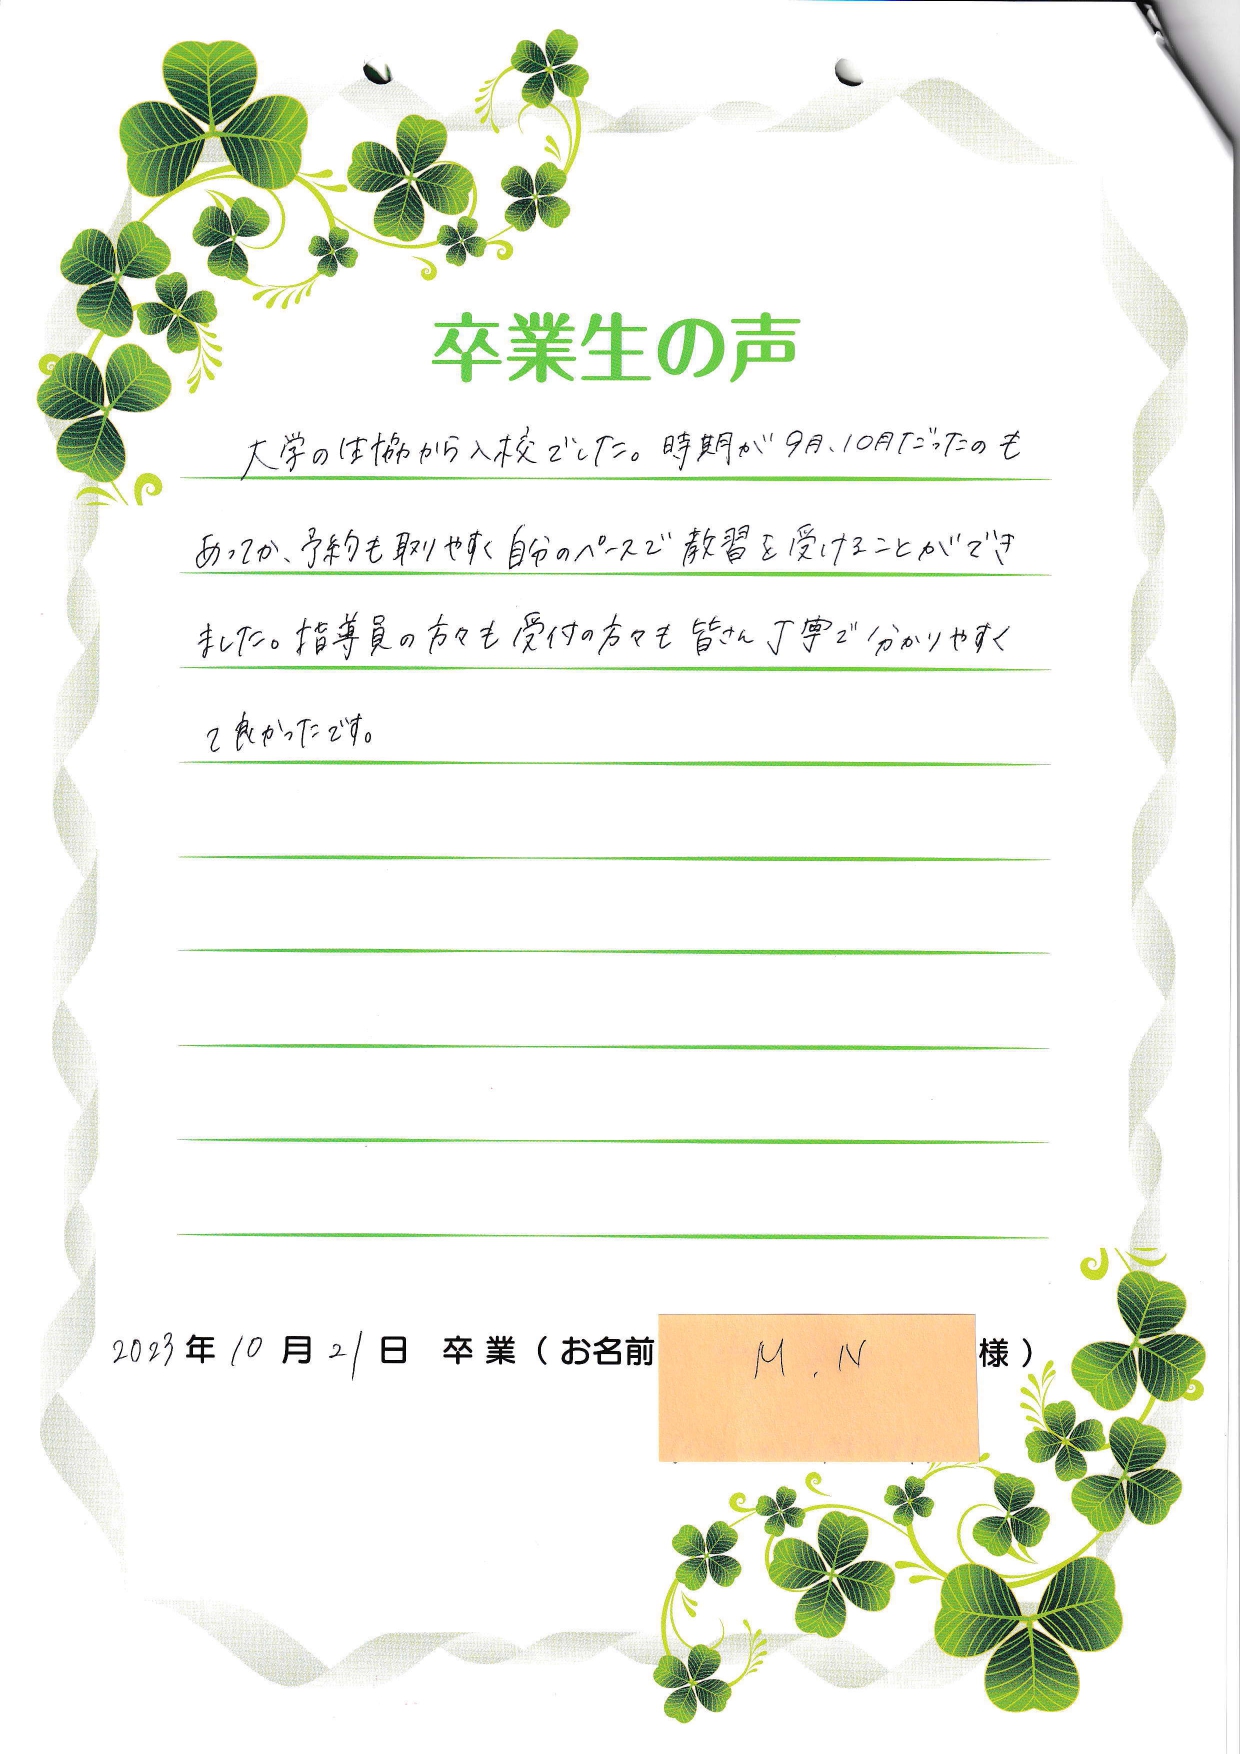 卒業生の声
大学の生協から入校でした。時期が9月、10月だったのも
あってか、予約も取りやすく自分のペースで教習を受けることができ
ました。指導員の方々も受付の方々も皆さん丁寧で分かりやすく
て良かったです。
2023年10月21日 卒業（お名前 M.N 様）